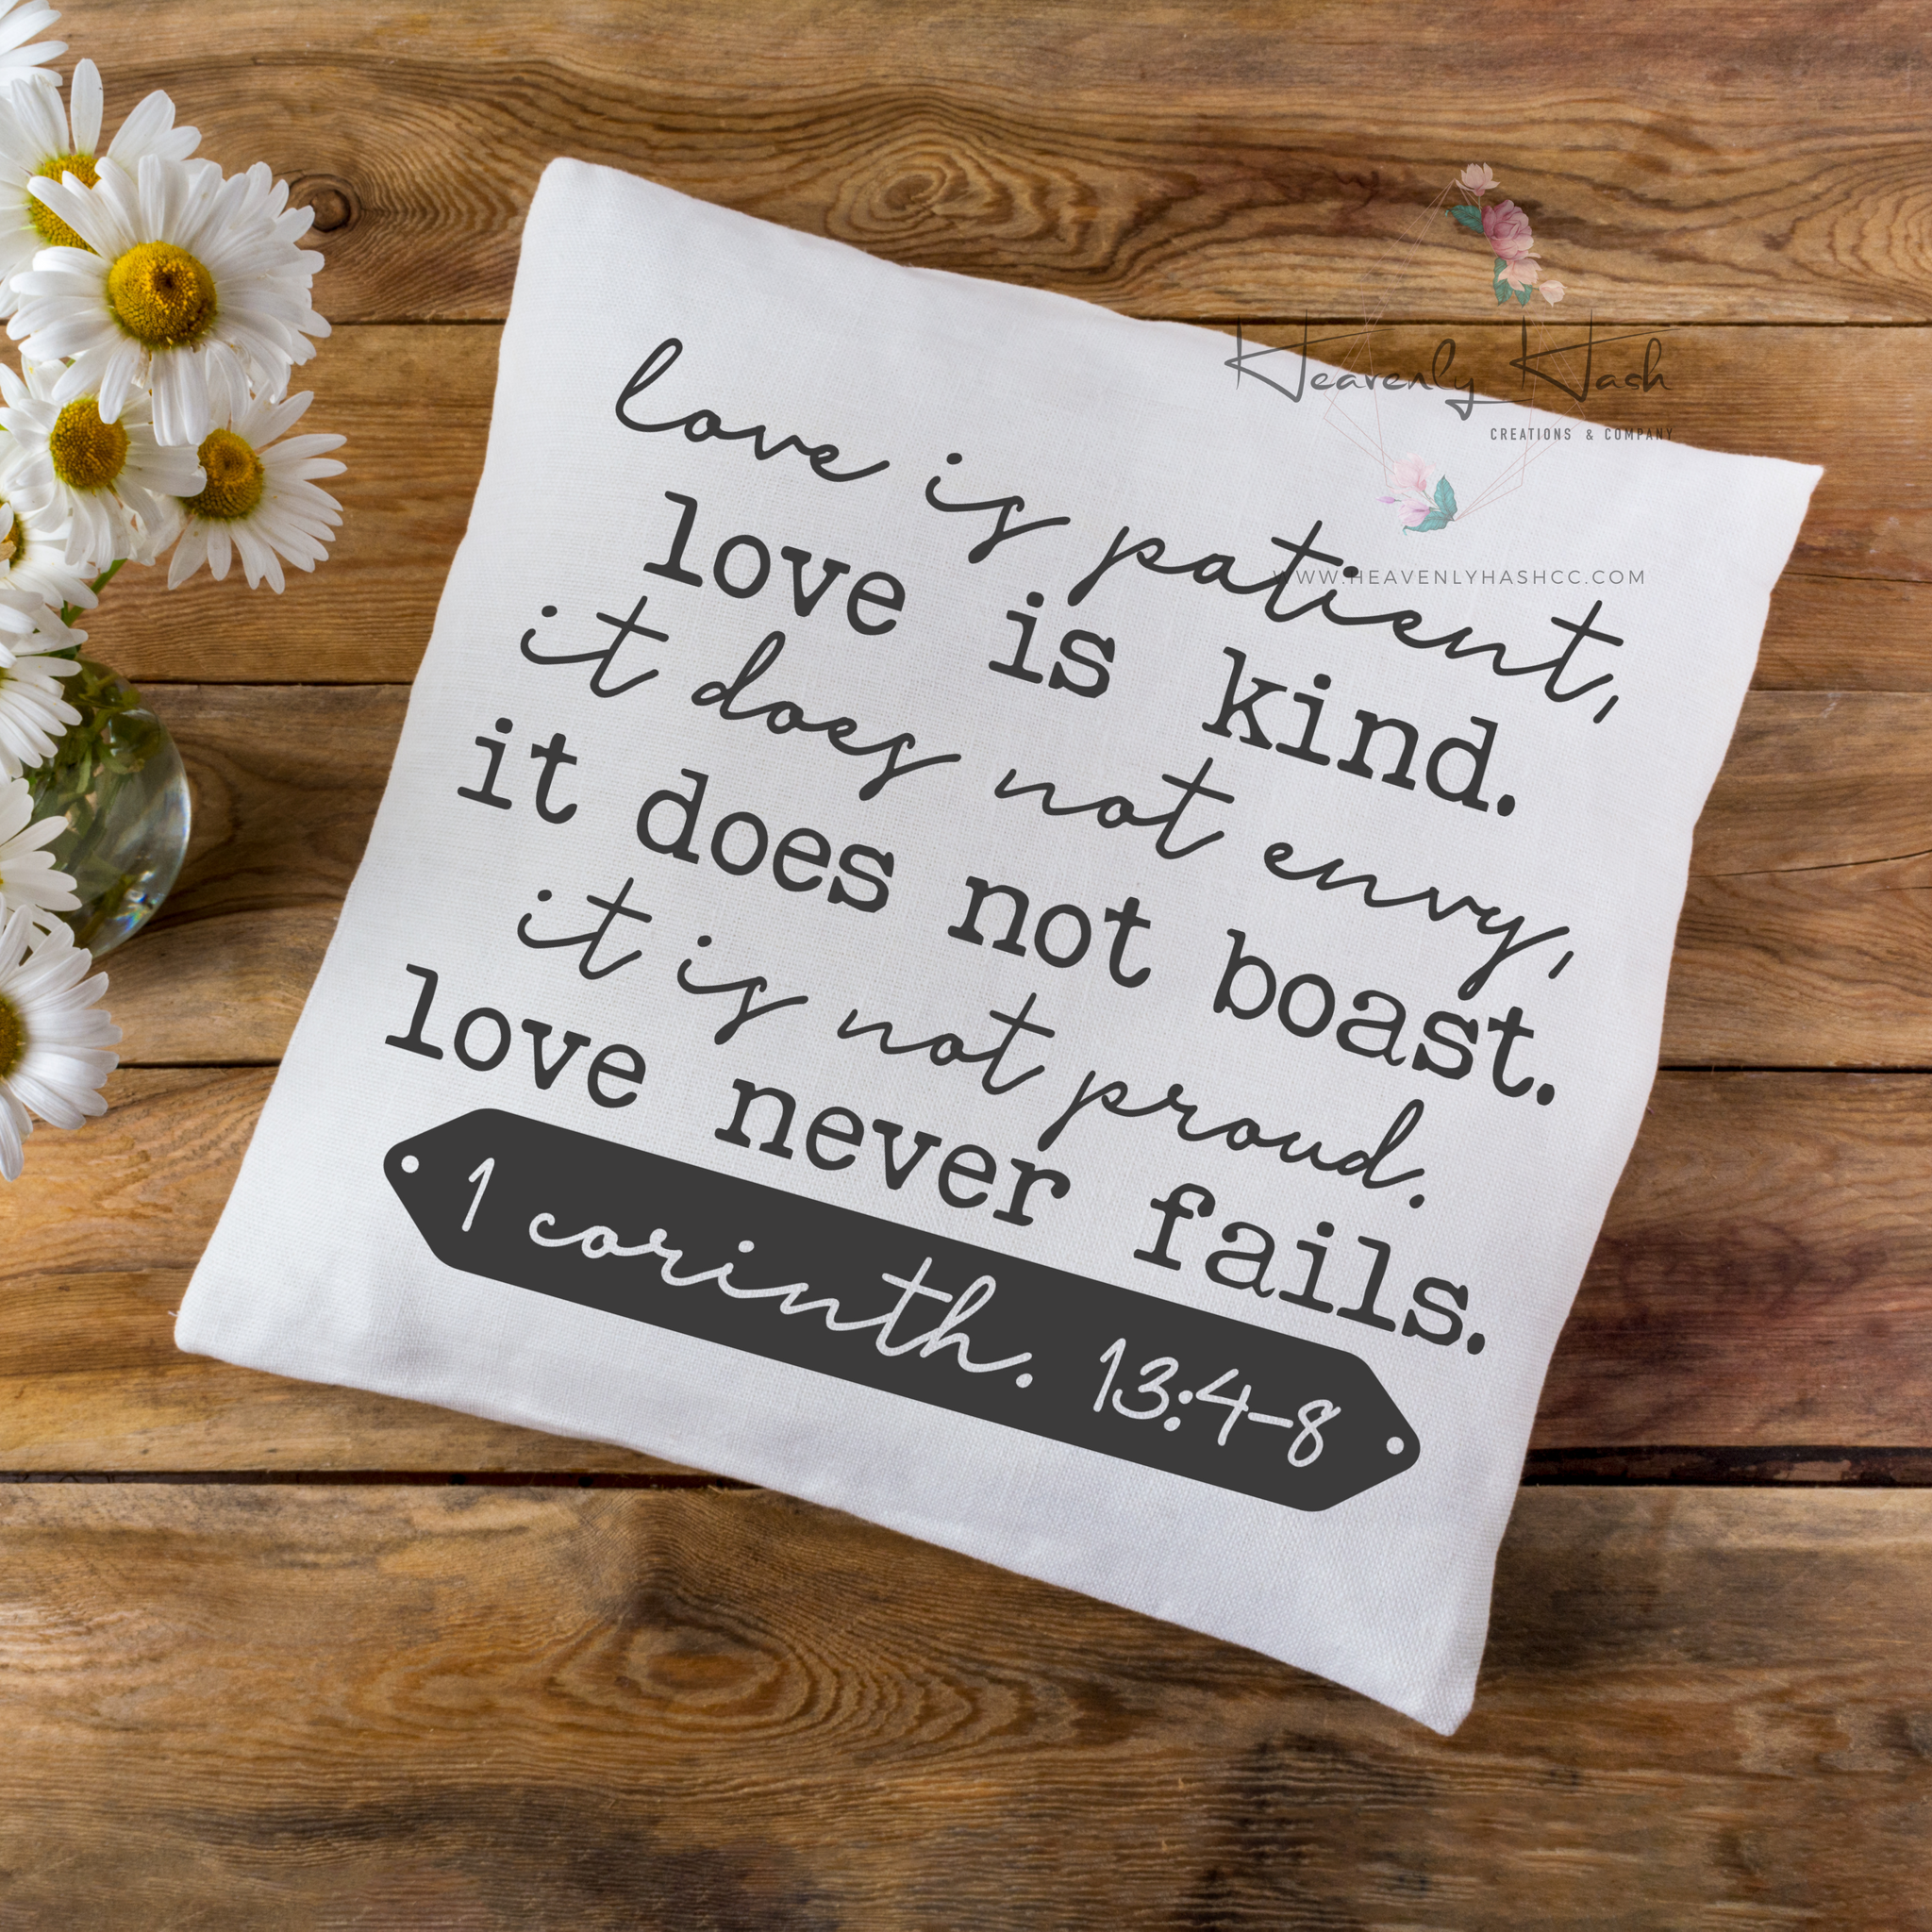 Heavenly Hash
CREATIONS & COMPANY
WWW.HEAVENLYHASHCC.COM
love is patient,
love is kind.
it does not envy,
it does not boast.
it is not proud.
love never fails.
1 corinth. 13:4-8